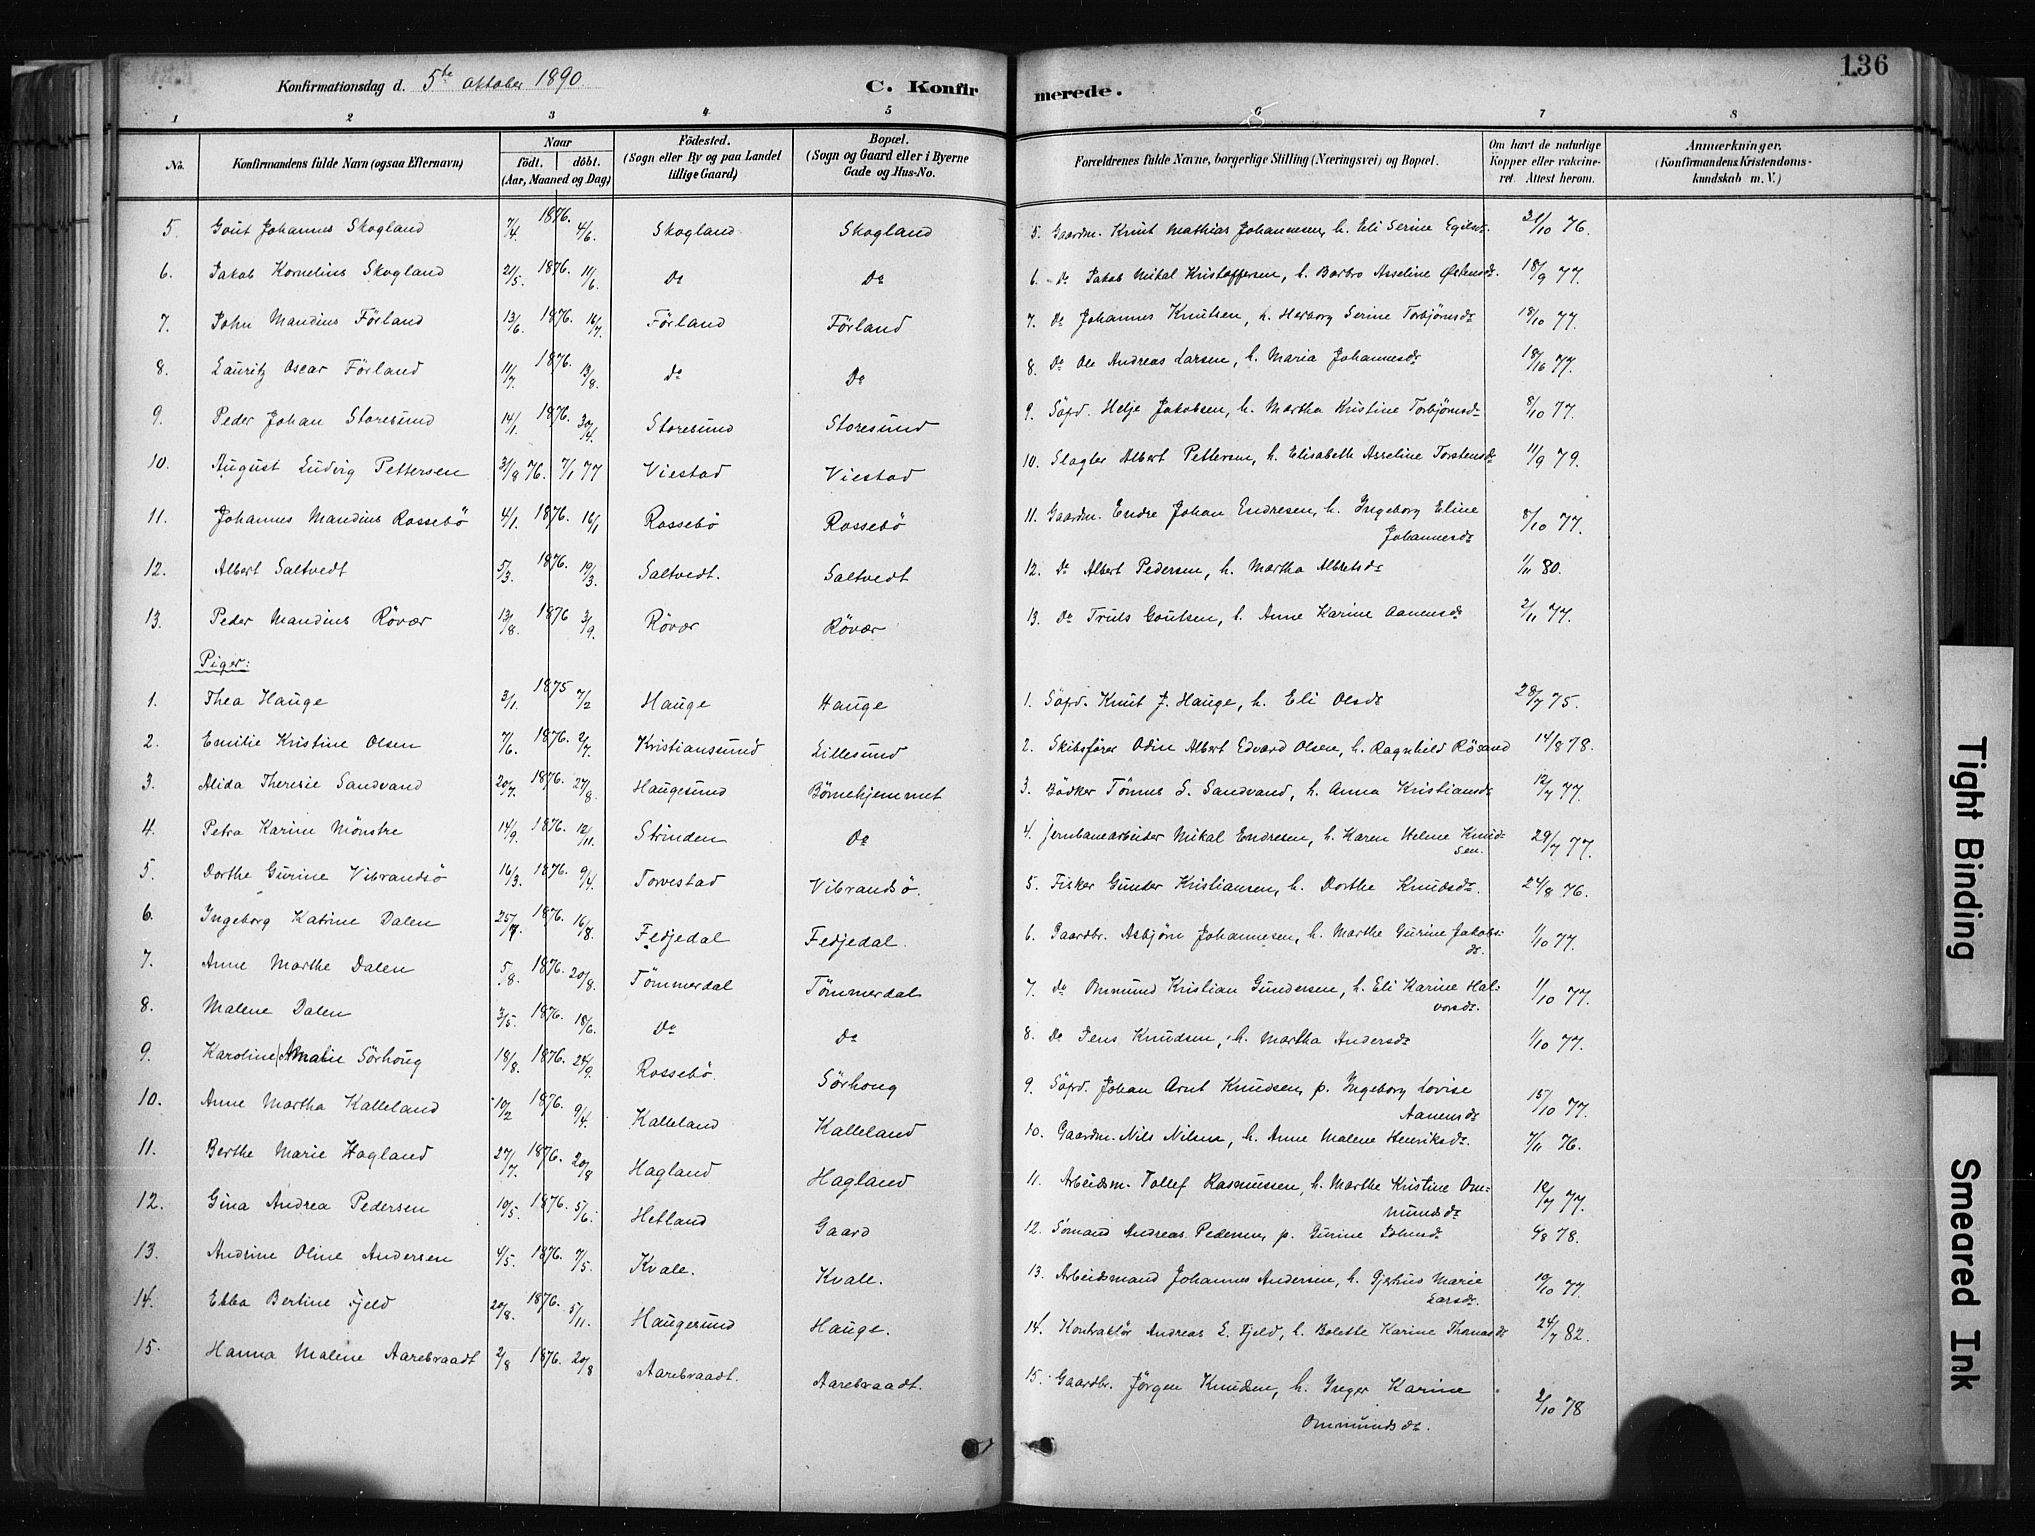 136
Konfirmationsdag d. 5te Oktober 1890.
C. Konfirmerede.
1 2 3 4 5 6 7 8
No. Konfirmandens fulde Navn (ogsaa Efternavn) Naar födt. döbt. (Aar, Maaned og Dag) Födested. (Sogn eller By og paa Landet tillige Gaard) Bopæl. (Sogn og Gaard eller i Byerne Gade og Hus-No. Forældrenes fulde Navne, borgerlige Stilling (Næringsvei) og Bopæl. Om havt de naturlige Kopper eller vakcineret. Attest herom. Anmærkninger. (Konfirmandens Kristendomskundskab m. V.)
5. Gout Johannes Skogland 7/4. 1876. 4/6. Skogland Skogland 5. Gaardm. Knut Mathias Johannesen, h. Eli Serine Egilsdr. 31/10 76.
6. Jakob Kornelius Skogland 21/5. 1876. 11/6. Do Do 6. Do Jakob Mikal Kristoffersen, h. Barbro Asseline Östensdr. 18/9 77.
7. John Mandius Förland 13/6. 1876. 16/7. Förland Förland 7. Do Johannes Knutsen, h. Herborg Serine Torbjörnsdr 18/10 77.
8. Lauritz Oscar Förland 11/7. 1876. 13/8. Do Do 8. Do Ole Andreas Larsen, h. Maria Johannesdr 18/10 77.
9. Peder Johan Storesund 14/1. 1876. 30/4. Storesund Storesund 9. Söfd. Helje Jakobsen, h. Martha Kristine Torbjörnsdr 8/10 77.
10. August Ludvig Pettersen 3/8 76. 7/1 77 Viestad Viestad 10. Slagter Albert Pettersen, h. Elisabeth Asseline Torstensdr 11/9 79.
11. Johannes Mandius Rossebö 4/1. 1876. 16/1 Rossebö Rossebö 11. Gaardm. Endre Johan Endresen, h. Ingeborg Eline Johannesdr 8/10 77.
12. Albert Saltvedt 5/3. 1876. 19/3. Saltvedt. Saltvedt 12. Do Albert Pedersen, h. Martha Albretsdr 1/11 80.
13. Peder Mandius Rövær 13/8. 1876 3/9. Rövær Rövær 13. Do Truls Goutsen, h. Anne Karine Aanensdr 2/11 77.
Piger:
1. Thea Hauge 3/1. 1875 7/2 Hauge Hauge 1. Söfd. Knut J. Hauge, h. Eli Olsdr 28/7 75.
2. Emilie Kristine Olsen 7/6. 1876. 2/7. Kristiansund Lillesund 2. Skibsförer Odin Albert Edvard Olsen, h. Ragnhild Rösand 14/8 78.
3. Alida Theresie Sandvand 20/7. 1876. 27/8. Haugesund Börnehjemmet 3. Bödker Tönnes S. Sandvand, h. Anna Kristiansdr 12/7 77.
4. Petra Karine Mönstre 14/9. 1876. 12/11. Strinden Do 4. Jernbanearbeider Mikal Endresen, h. Karen Helene Knudsen. 29/7 77.
5. Dorthe Gurine Vibrandsö 16/3. 1876. 9/4. Torvestad Vibrandsö. 5. Fisker Gunder Kristiansen, h. Dorthe Knudsdr. 24/8 76.
6. Ingeborg Katrine Dalen 25/7. 1876. 16/8. Fedjedal Fedjedal. 6. Gaardbr. Asbjörn Johannesen, h. Marthe Gurine Jakobsdr. 1/10 77.
7. Anne Marthe Dalen 5/8. 1876. 20/8. Tömmerdal Tömmerdal 7. Do Ommund Kristian Gundersen, h. Eli Karine Halvorsdr. 1/10 77.
8. Malene Dalen 3/5. 1876. 18/6. Do Do 8. Do Jens Knudsen, h. Martha Andersdr 1/10 77.
9. Karoline Amalie Sörhoug 18/8. 1876. 24/9. Rossebö. Sörhoug 9. Söfd. Johan Arnt Knudsen, p. Ingeborg Lovise Aanensdr 15/10 77.
10. Anne Martha Kalleland 10/2 1876. 9/4. Kalleland Kalleland 10. Gaardm. Nils Nilsen, h. Anne Malene Henriksdr. 7/11 76.
11. Berthe Marie Hagland 27/7. 1876. 20/8 Hagland Hagland 11. Arbeidsm. Tollef Rasmussen, h. Marthe Kristine Ommundsdr 12/7 77.
12. Gina Andrea Pedersen 10/5. 1876. 5/6. Hetland Gaard 12. Sömand Andreas Pedersen, p. Gurine Johnsdr 6/8 78.
13. Andrine Oline Andersen 4/5. 1876. 7/5. Kvale. Kvale. 13. Arbeidsmand Johannes Andersen, h. Gjerhus Marie Larsdr. 19/10 77.
14. Ebba Bertine Fjeld 20/8. 1876. 5/11. Haugesund Hauge. 14. Kontraktör Andreas E. Fjeld, h. Bolette Karine Thomasdr 24/7 82.
15. Hanna Malene Aarebraadt 2/8 1876. 20/8 Aarebraadt. Aarebraadt. 15. Gaardbr. Jörgen Knudsen, h. Inger Karine Ommundsdr. 2/10 78
Tight Binding
Smeared Ink